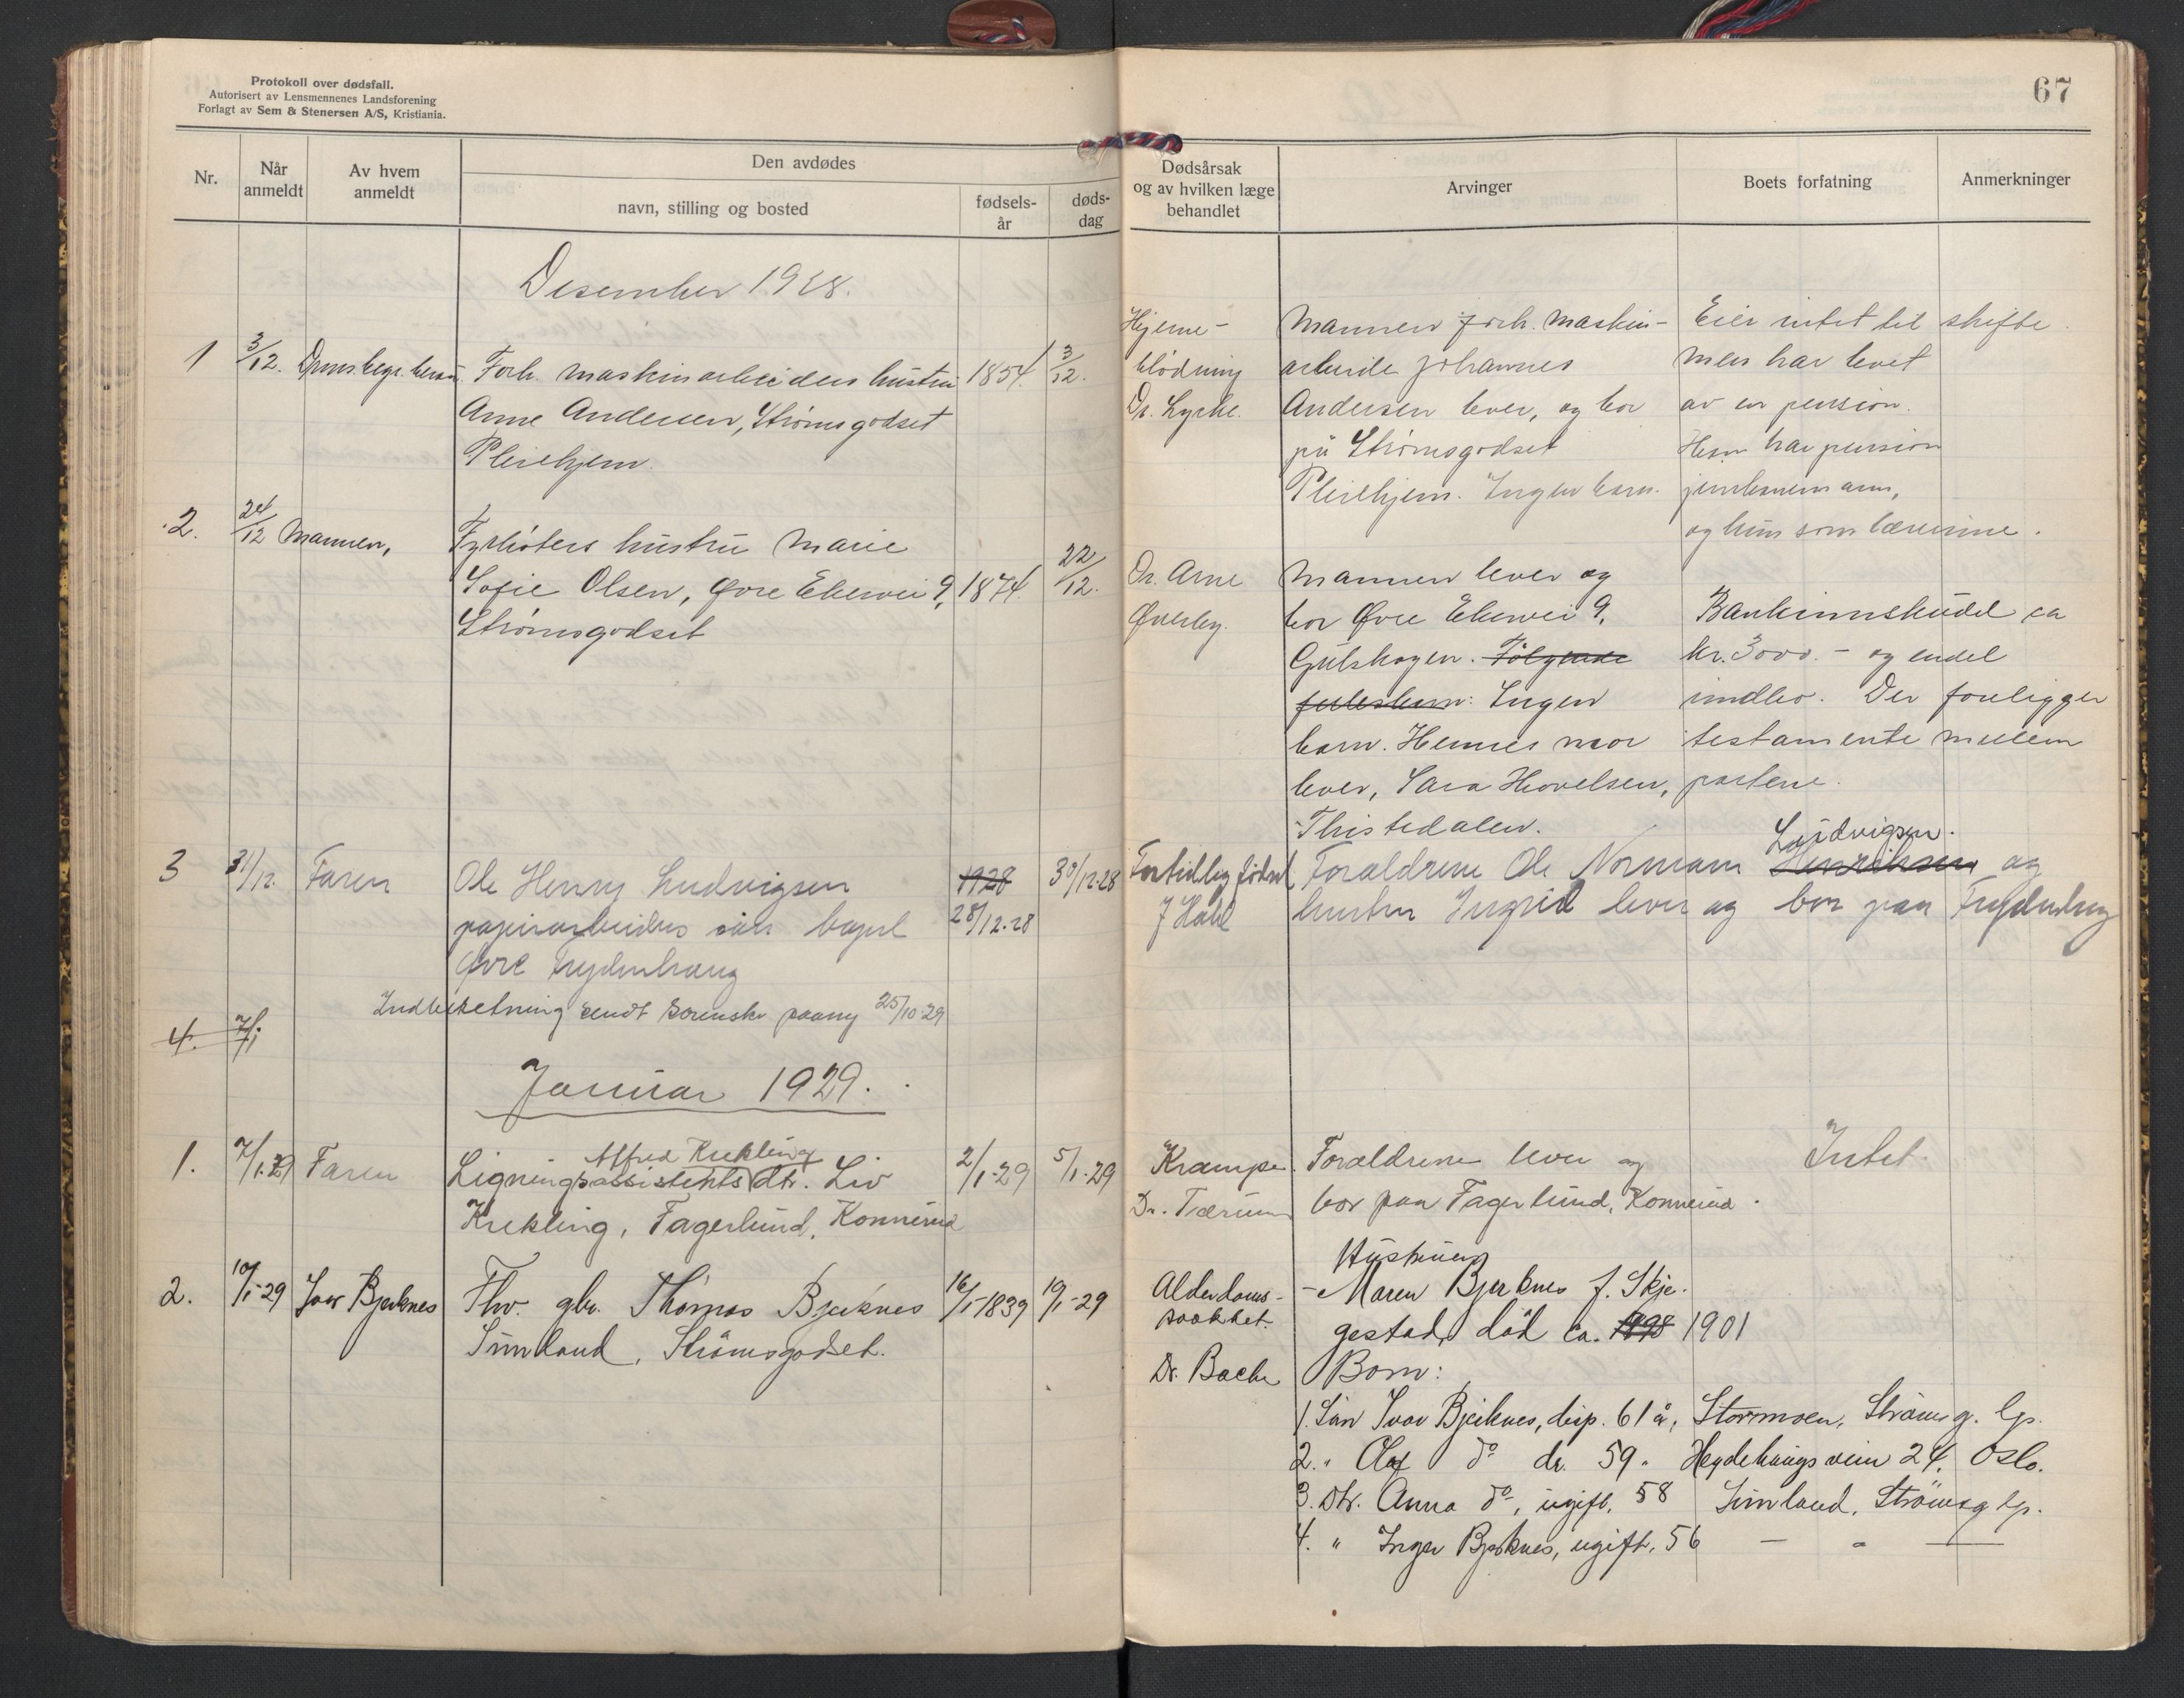 Protokoll over dødsfall.
Autorisert av Lensmennenes Landsforening
Forlagt av Sem & Stenersen A/S, Kristiania.
67
Nr.
Når anmeldt
Av hvem anmeldt
Den avdødes
navn, stilling og bosted
fødsels-år
døds-dag
Dødsårsak og av hvilken læge behandlet
Arvinger
Boets forfatning
Anmerkninger
Desember 1928.
1 3/12. Drms. begr. Forh. maskinarbeiders hustru 1854. 3/12.
Anne Andersen, Strømsgodset
Pleiehjem.
Hjerne-
blödning
Dr. Lyche.
Mannen forh. maskin-
arbeide Johannes
Andersen lever, og bor
på Strømsgodset
Pleiehjem. Ingen barn.
Eier intet til skifte
men har levet
av en pension.
Han har pension
jernbanemann,
og hun som lærerinne.
2. 24/12 Mannen, Fyrbøters hustru Marie
Sofie Olsen, Øvre Ekervei 9, 1874. 22/12.
Strømsgodset
Dr. Arne
Øverby.
Mannen lever og
bor Øvre Ekervei 9,
Gulskogen. Følgende
fellesbarn: Ingen
barn. Hennes mor
lever, Sara Hovelsen,
Thistedalen.
Bankinnskudd ca
kr. 3000.- og endel
innbo. Der foreligger
testamente mellem
partene.
3 31/12. Faren Ole Henry Ludvigsen 1928 30/12-28
papirarbeiders sön 28/12-28
Øvre Frydenhaug
Fortidlig födsel
J Hald
Ludvigsen.
Forældrene Ole Normann Henriksen og
hustru Ingrid lever og bor paa Frydenhaug
Indberetning sendt sorenskr paany 25/10-29
4. 7/1
Januar 1929.
1. 7/1-29 Faren Ligningsassistents dtr. Liv 2/1-29 5/1-29
Alfred Krekling
Krekling, Fagerlund, Konnerud
Krampe
Dr. Tærum
Forældrene lever og
bor paa Fagerlund, Konnerud.
Intet.
2. 10/1-29 Ivar Bjerknes Fhv. gbr. Thomas Bjerknes 16/1-1839 10/1-29
Sunland, Strömsgodset.
Alderdoms-
svakhet.
Dr. Bache
Hustruen
- Maren Bjerknes f. Skje-
gestad, död ca. 1898 1901
Barn:
1. Sön Ivar Bjerknes, disp. 61 å, Stormoen, Strömsg. lgs.
2. " Olaf do dr. 59 " Heydehaugs veien 24, Oslo.
3. Dtr. Anna do, ugift, 58 Sunland, Strömsg lgs.
4. " Inga Bjerknes, ugift, 56 — " —